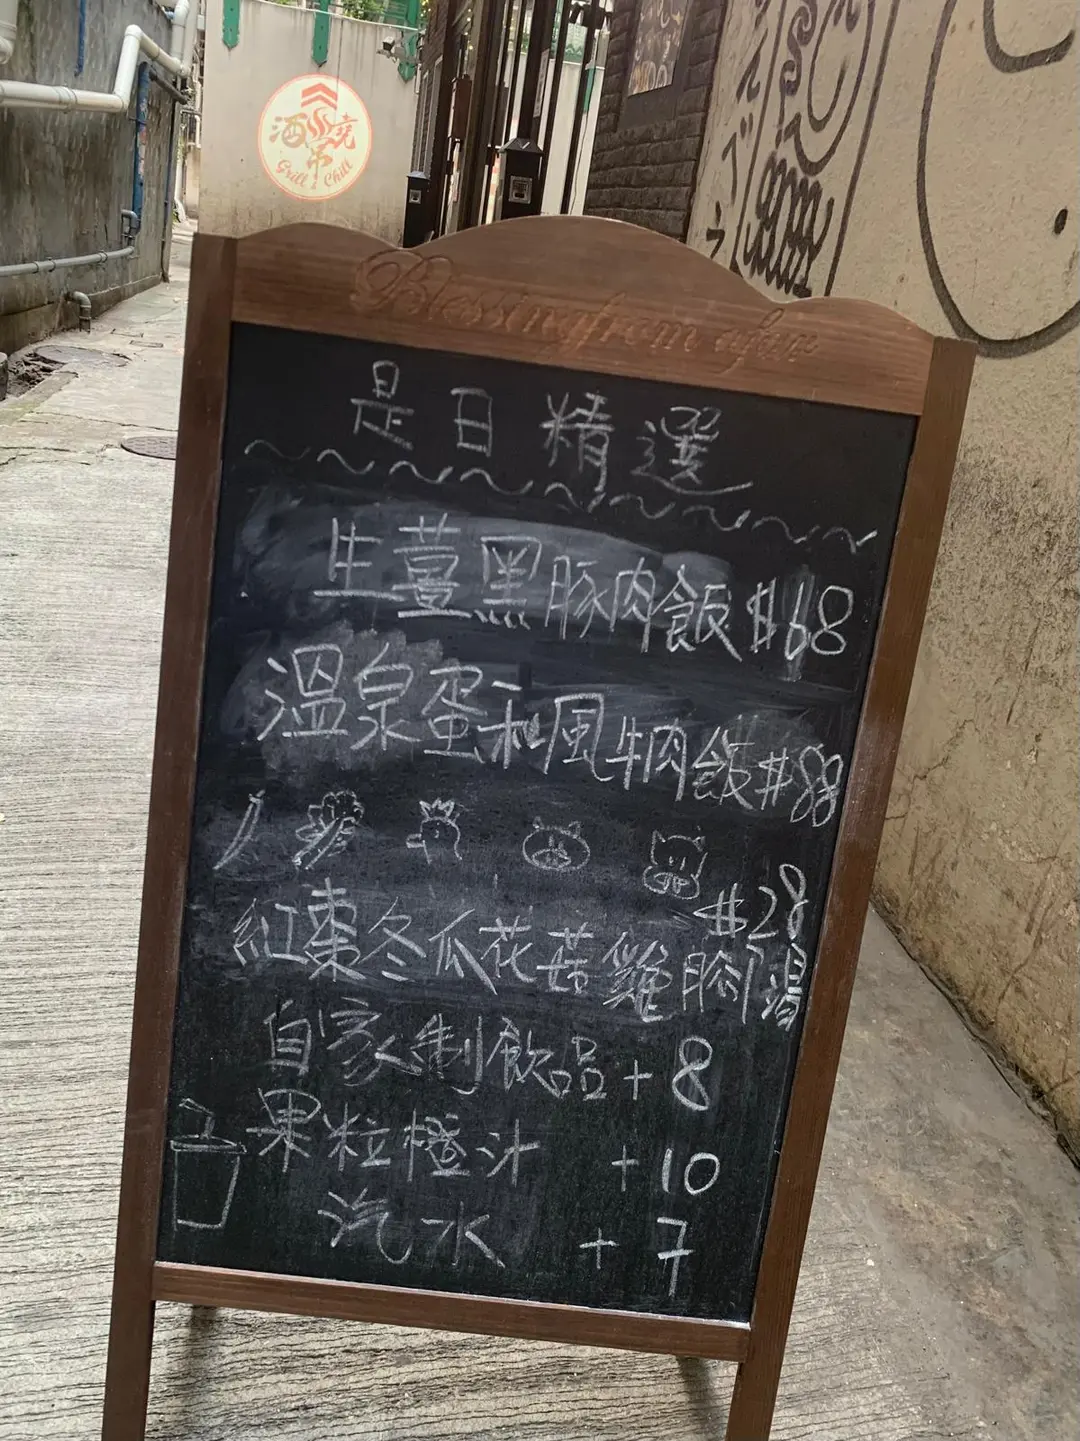 酒 燒
串
Grill & Chill
Blessing from afar
是日精選
生薑黑豚肉飯 $68
溫泉蛋和風牛肉飯 $88
$28
紅棗冬瓜花菇雞腳湯
自家制飲品 + 8
果粒橙汁 + 10
汽水 + 7